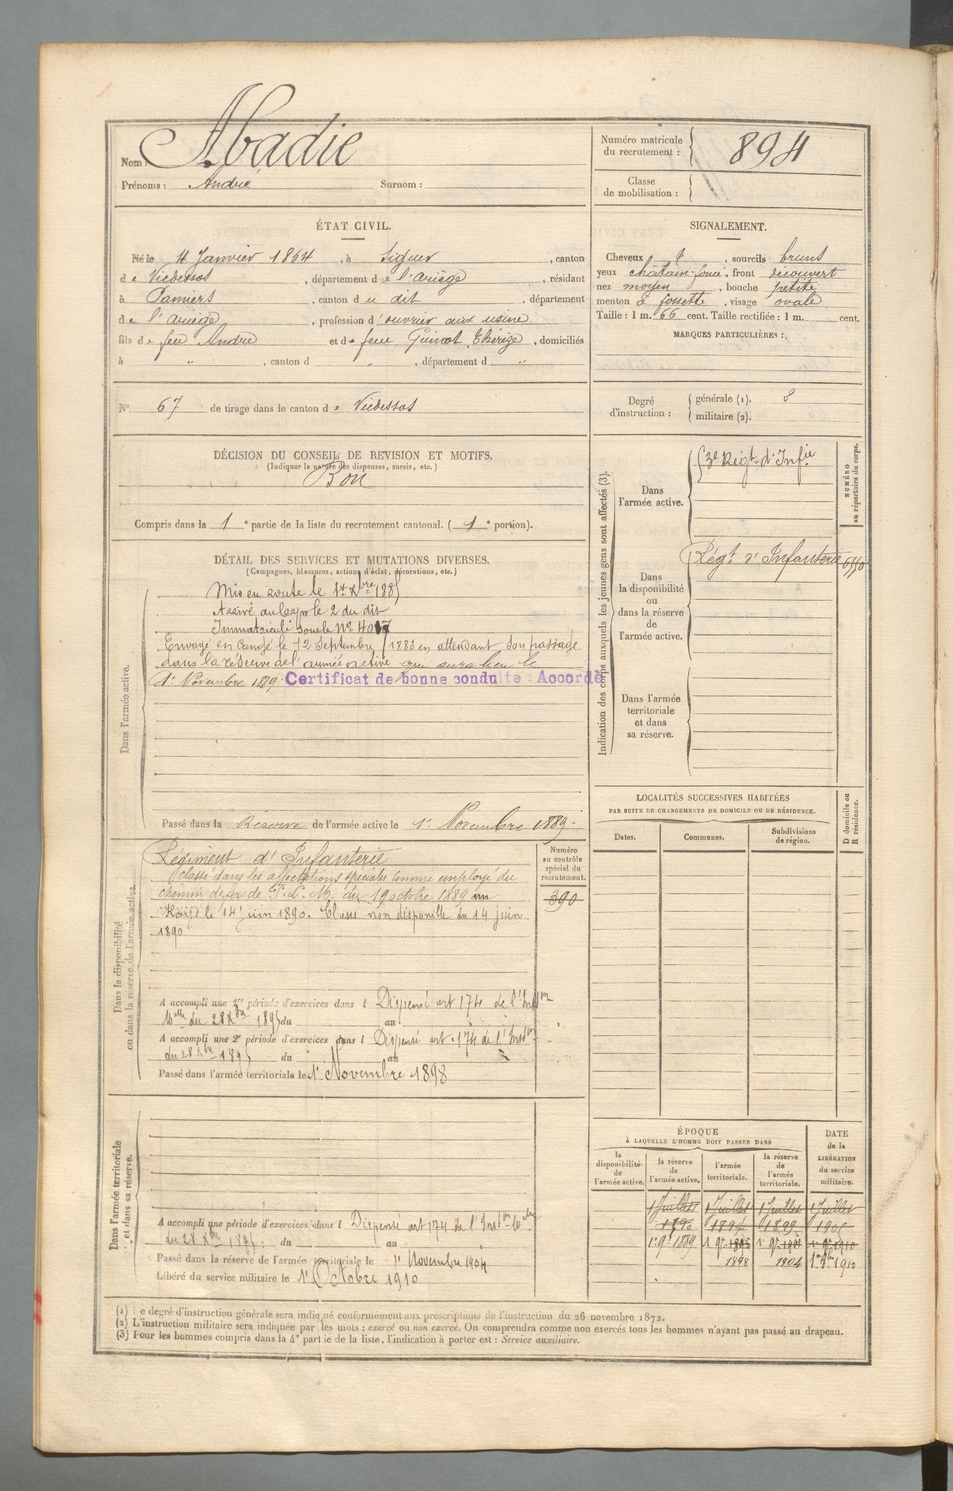 Nom : Abadie
Prénoms : André Surnom :
Numéro matricule du recrutement : 894
Classe de mobilisation :
ÉTAT CIVIL.
Né le 4 Janvier 1864, à Siguer, canton
de Vicdessos, département de l'Ariège, résidant
à Pamiers, canton du dit, département
de l'Ariège, profession d'ouvrier aux usine
fils de feu André et de feue Guinot Thérèze, domiciliés
à " , canton d " , département d "
SIGNALEMENT.
Cheveux , sourcils bruns
yeux chatain foncé, front découvert
nez moyen, bouche petite
menton à fossette, visage ovale
Taille : 1 m. 66 cent. Taille rectifiée : 1 m. cent.
MARQUES PARTICULIÈRES :
N° 67 de tirage dans le canton de Vicdessos
Degré d'instruction : générale (1).
militaire (2).
DÉCISION DU CONSEIL DE REVISION ET MOTIFS.
(Indiquer la nature des dispenses, sursis, etc.)
Bon
Compris dans la 1e partie de la liste du recrutement cantonal. (1e portion).
DÉTAIL DES SERVICES ET MUTATIONS DIVERSES.
(Campagnes, blessures, actions d'éclat, décorations, etc.)
Dans l'armée active.
Mis en route le 1er Xbre 1885
Arrivé au Corps le 2 du dit
Immatriculé sous le No
Envoyé en congé le 12 Septembre 1888 en attendant son passage
dans la réserve de l'armée active qui aura lieu le
1er Novembre 1889. Certificat de bonne conduite : Accordé
Passé dans la Réserve de l'armée active le 1er Novembre 1889.
Indication des corps auxquels les jeunes gens sont affectés (3).
NUMÉRO au répertoire du corps.
Dans l'armée active.
Regt d'Infie
Dans la disponibilité ou dans la réserve de l'armée active.
Régt d'Infanterie
Dans l'armée territoriale et dans sa réserve.
LOCALITÉS SUCCESSIVES HABITÉES
PAR SUITE DE CHANGEMENTS DE DOMICILE OU DE RÉSIDENCE.
Dates. Communes. Subdivisions de région.
D domicile ou R résidence.
Dans la disponibilité ou dans la réserve de l'armée active.
Numéro au contrôle spécial du recrutement.
390
Régiment d'Infanterie
Classé dans les affectations spéciales comme employé du
chemin de fer de P. L. M. du 19 octbre 1889 au
Rayé le 14 juin 1890. Classé non disponible du 14 juin
1890
A accompli une 1re période d'exercices dans l Dispensé art 174 de l'Inston
du 28 Xbre 1895 du au
A accompli une 2e période d'exercices dans l Dispensé art. 174 de l'Inston
du 28 Xbre 1895 du au
Passé dans l'armée territoriale le 1er Novembre 1898
Dans l'armée territoriale et dans sa réserve.
A accompli une période d'exercices dans l Dispensé art 174 de l'Inston
du 28 Xbre 1895 : du au
Passé dans la réserve de l'armée territoriale le 1er Novembre 1904
Libéré du service militaire le 1er Octobre 1910
ÉPOQUE
À LAQUELLE L'HOMME DOIT PASSER DANS
DATE de la LIBÉRATION du service militaire.
la disponibilité de l'armée active.
la réserve de l'armée active.
l'armée territoriale.
la réserve de l'armée territoriale.
1 Juillet 1 Juillet 1 Juillet 1 Juillet
1890
1er 9bre 1889
1898 1904
(1) Le degré d'instruction générale sera indiqué conformement aux prescriptions de l'instruction du 26 novembre 1872.
(2) L'instruction militaire sera indiquée par les mots : exercé ou non exercé. On comprendra comme non exercés tous les hommes n'ayant pas passé au drapeau.
(3) Pour les hommes compris dans la 4e partie de la liste, l'indication à porter est : Service auxiliaire.